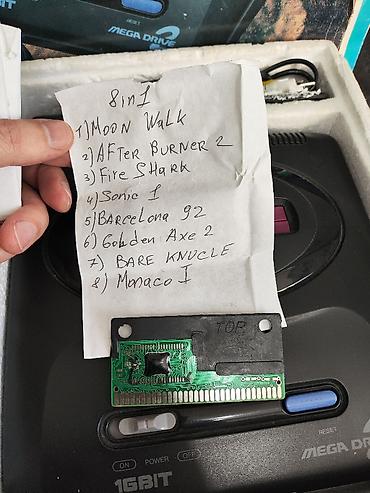 RESET
MEGA DRIVE
2
16BIT
8in1
1) MOON WaLK
2) AFTER BURNER 2
3) Fire SHARK
4) Sonic 1
5) BARCelona 92
6) Golden Axe 2
7) BARE KNUCLE
8) Monaco I
TOP
RESET
MEGA DRIVE
ON POWER OFF
16BIT